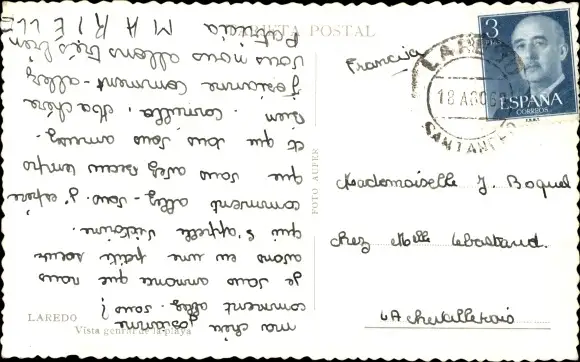 TARJETA POSTAL
Francija
3
PTAS
ESPAÑA
CORREOS
LAREDO
18 AGO 6
SANTANDER
Mademoiselle J. Boquel
chez Melle
LA chevalleraio
FOTO AUPER
LAREDO
Vista general de la playa
ma chère
Josianne
comment allez - vous ?
je vous annonce que nous
avons eu une petite soeur
qui s'appelle Victoire.
comment allez - vous. j'espère
que vous avez beau temps
et que vous amusez
bien. Cornélia. Ma chère
Josianne comment - allez
vous nous allons très bien
Patricia
MARIELLE